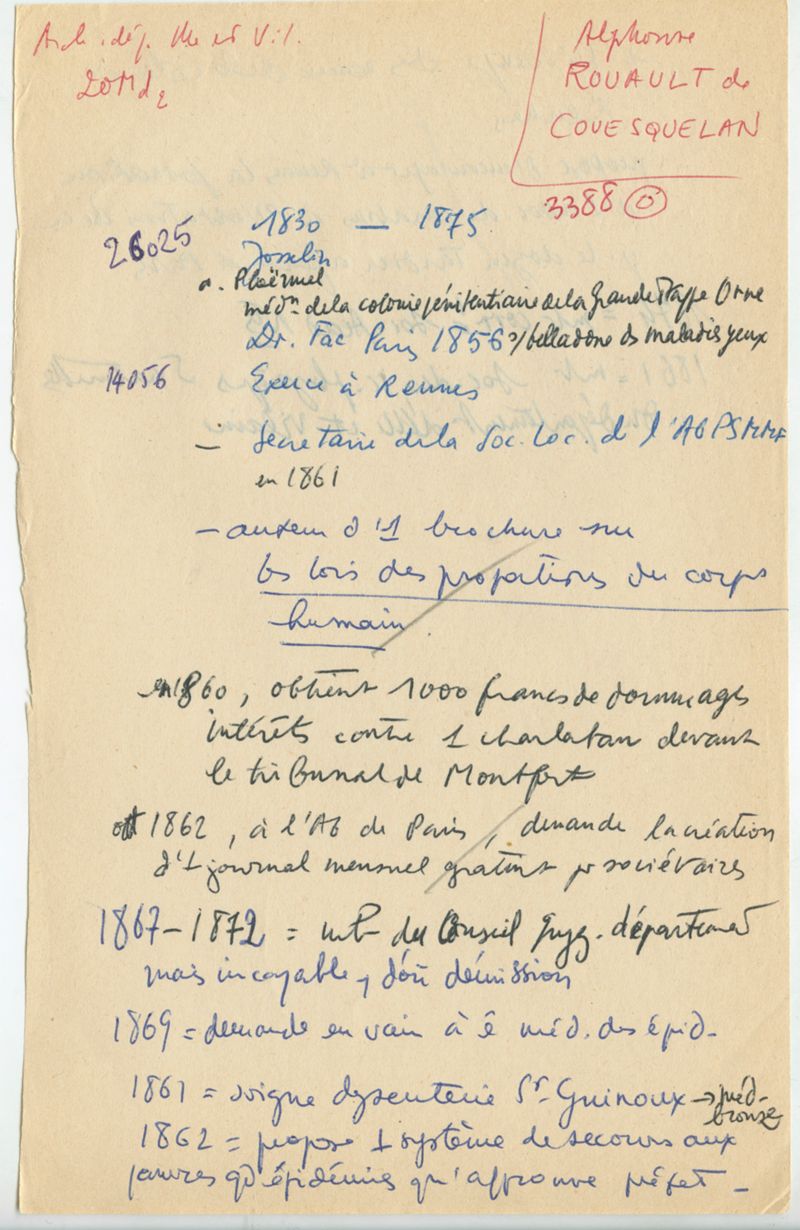 Arch. dép. Ille et Vil.
20Md2
Alphonse
ROUAULT de
COUESQUELAN
3388 O
26025
1830 — 1875
Josselin
Ploërmel
médn de la colonie pénitentiaire de la Grande Trappe Orne
Dr. Fac Paris 1856 belladone ds maladies yeux
14056
Exerce à Rennes
— Secrétaire de la Soc. Loc. de l'AGPSMMF
en 1861
— auteur d'1 brochure sur
les lois des proportions du corps
humain.
en 1860, obtient 1000 francs de dommages
intérêts contre 1 charlatan devant
le tribunal de Montfort
1862, à l'AG de Paris, demande la création
d'1 journal mensuel gratuit pr sociétaires
1867-1872 = mb du Conseil hyg. départemental
mais incapable, d'où démission
1869 = demande en vain à ê méd. des épid.
1861 = soigne dysenterie St-Guinoux → méd-
bronze
1862 = propose 1 système de secours aux
pauvres qd épidémies qu'approuve préfet —